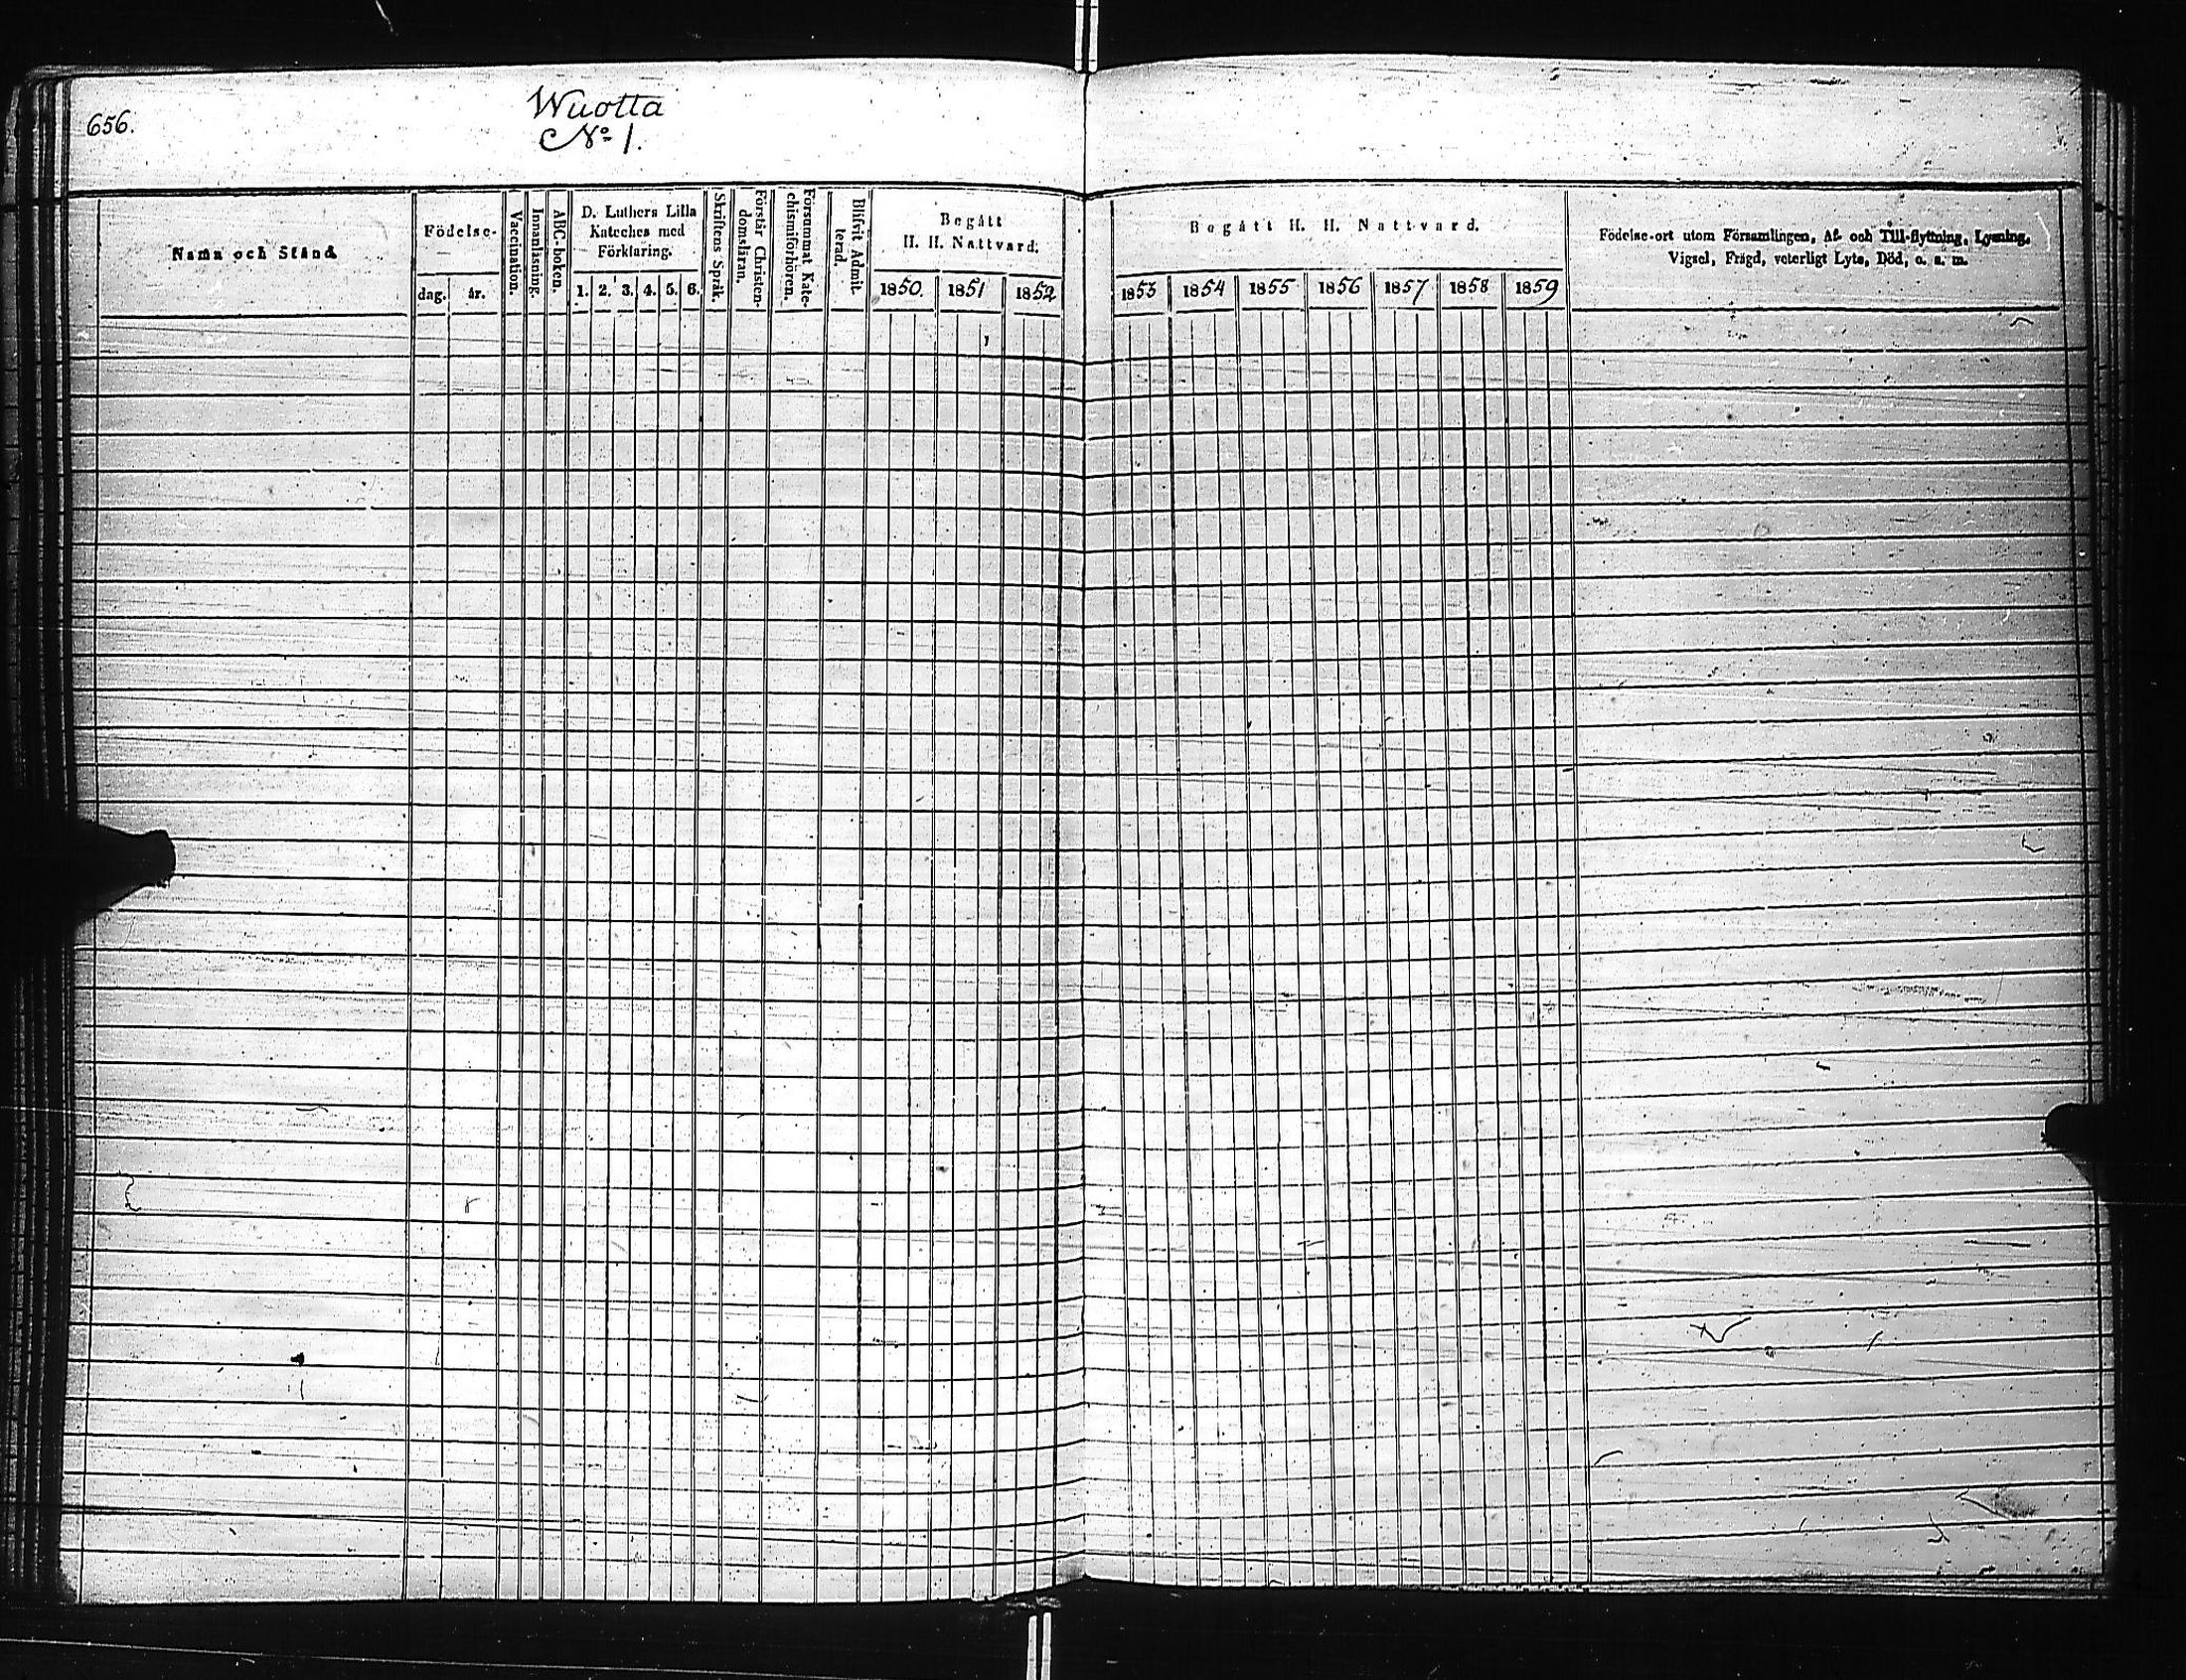 656.
Wuotta
No 1.
Namn och Stånd.
Födelse-
dag.
år.
Vaccination.
Innanläsning.
ABC-boken.
D. Luthers Lilla
Kateches med
Förklaring.
1. 2. 3. 4. 5. 6.
Skriftens Språk.
Förstår Christen-
domsläran.
Försummat Kate-
chismiförhören.
Blifvit Admit-
terad.
Begått
H. H. Nattvard.
1850. 1851 1852
Begått H. H. Nattvard.
1853 1854 1855 1856 1857 1858 1859
Födelse-ort utom Församlingen, Af- och Till-flyttning, Lysning,
Vigsel, Frägd, veterligt Lyte, Död, o. s. m.